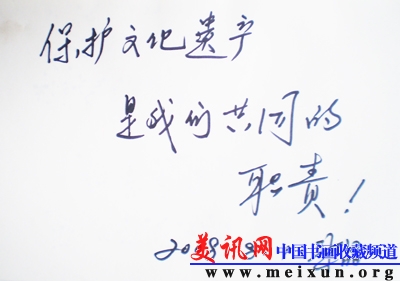 保护文化遗产
是我们共同的
职责！
美讯网 中国书画收藏频道
www.meixun.org